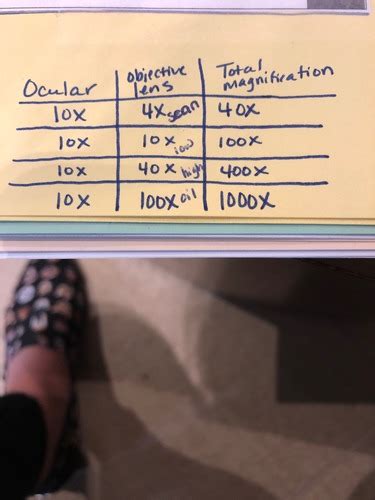 Ocular objective lens Total magnification
10X 4X scan 40X
10X 10X low 100X
10X 40X high 400X
10X 100X oil 1000X